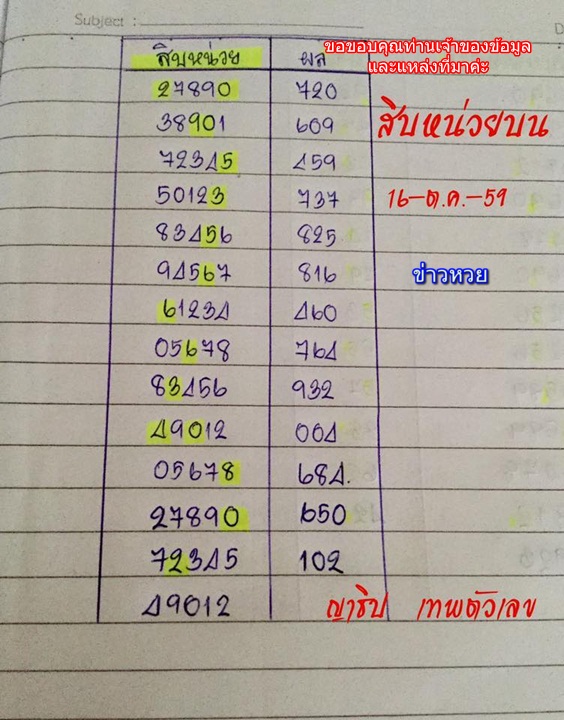 Subject :
ขอขอบคุณท่านเจ้าของข้อมูล
และแหล่งที่มาค่ะ
สิบหน่วย ผล
27890 720
38901 609
72345 459
50123 737
83456 825
94567 816
61234 460
05678 764
83456 932
49012 004
05678 684.
27890 650
72345 102
49012
สิบหน่วยบน
16-ต.ค.-59
ข่าวหวย
ญาธิป เทพตัวเลข